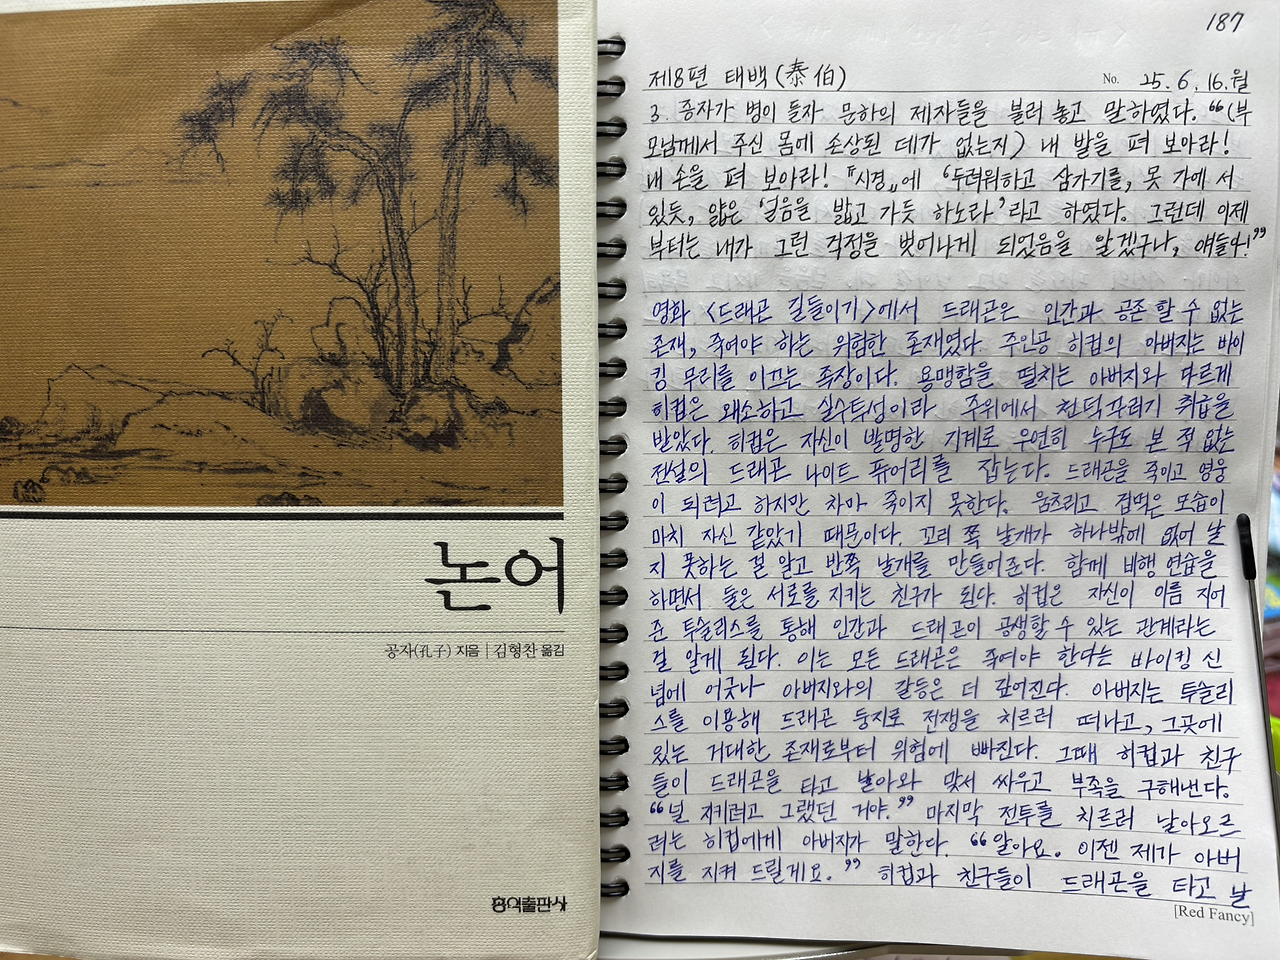 논어
공자(孔子) 지음 | 김형찬 옮김
홍익출판사
187
제8편 태백(泰伯) No. 25. 6. 16. 월
3. 증자가 병이 들자 문하의 제자들을 불러 놓고 말하였다. “(부
모님께서 주신 몸에 손상된 데가 없는지) 내 발을 펴 보아라!
내 손을 펴 보아라! 『시경』에 ‘두려워하고 삼가기를, 못 가에 서
있듯, 얇은 얼음을 밟고 가듯 하노라’라고 하였다. 그런데 이제
부터는 내가 그런 걱정을 벗어나게 되었음을 알겠구나, 얘들아!”
영화 <드래곤 길들이기>에서 드래곤은 인간과 공존 할 수 없는
존재, 죽여야 하는 위험한 존재였다. 주인공 히컵의 아버지는 바이
킹 무리를 이끄는 족장이다. 용맹함을 떨치는 아버지와 다르게
히컵은 왜소하고 실수투성이라 주위에서 천덕꾸러기 취급을
받았다. 히컵은 자신이 발명한 기계로 우연히 누구도 본 적 없는
전설의 드래곤 나이트 퓨어리를 잡는다. 드래곤을 죽이고 영웅
이 되려고 하지만 차마 죽이지 못한다. 움츠리고 겁먹은 모습이
마치 자신 같았기 때문이다. 꼬리 쪽 날개가 하나밖에 없어 날
지 못하는 걸 알고 반쪽 날개를 만들어준다. 함께 비행 연습을
하면서 둘은 서로를 지키는 친구가 된다. 히컵은 자신이 이름 지어
준 투슬리스를 통해 인간과 드래곤이 공생할 수 있는 관계라는
걸 알게 된다. 이는 모든 드래곤은 죽여야 한다는 바이킹 신
념에 어긋나 아버지와의 갈등은 더 깊어진다. 아버지는 투슬리
스를 이용해 드래곤 둥지로 전쟁을 치르러 떠나고, 그곳에
있는 거대한 존재로부터 위험에 빠진다. 그때 히컵과 친구
들이 드래곤을 타고 날아와 맞서 싸우고 부족을 구해낸다.
“널 지키려고 그랬던 거야.” 마지막 전투를 치르러 날아오르
려는 히컵에게 아버지가 말한다. “알아요. 이젠 제가 아버
지를 지켜 드릴게요.” 히컵과 친구들이 드래곤을 타고 날
[Red Fancy]